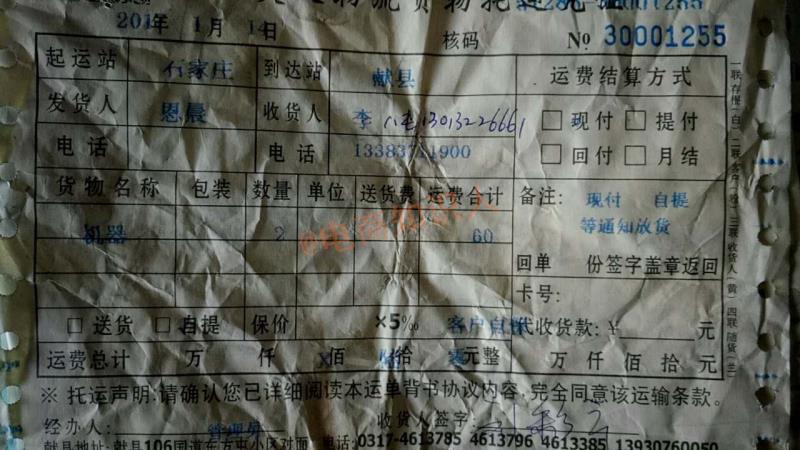 物流货物托运凭证
201 年 1 月 14 日 核码 № 30001255
起运站 石家庄 到达站 献县 运费结算方式
发货人 恩晨 收货人 李 13013226661 □现付 □提付
电话 电话 13383711900 □回付 □月结
货物名称 包装 数量 单位 送货费 运费合计 备注: 现付 自提
等通知放货
机器 2 60
@电商知识人
回单 份签字盖章返回
卡号:
□送货 □自提 保价 ×5‰ 客户自提 代收货款:¥ 元
运费总计 万 仟 佰 拾 元整 万 仟 佰 拾 元
※ 托运声明:请确认您已详细阅读本运单背书协议内容,完全同意该运输条款。
经办人: 管理员 收货人签字:
献县地址:献县106国道东方屯小区对面 电话:0317-4613785 4613796 4613385 13930760050
一联存根(白) 二联客户 三联收货人(黄) 四联随货(兰)